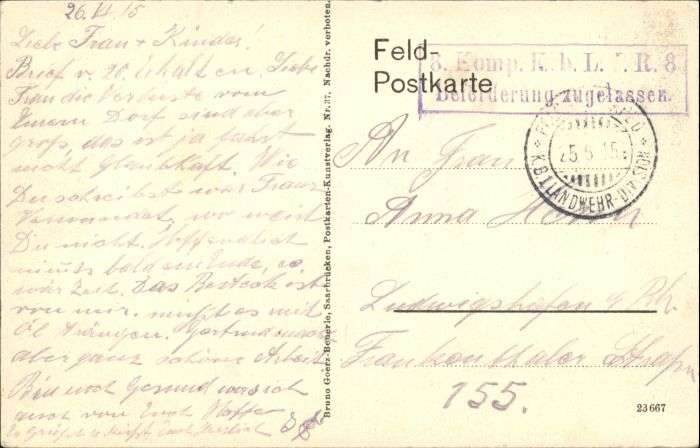 26. 15
Liebe Frau + Kinder!
Brief v. 20. Erhalten. Liebe
Frau die Verluste vom
Dorf sind aber
groß, das ist ja fast
nicht Glaubhaft. Wie
Du schreibst war Franz
Verwandt, wo weist
Du nicht. Hoffendlich
nimt's bald ein Ende, es
wär Zeit. Das Besteck ist
von mir. mußt es mit
Öl
aber ganz schöne Arbeit
Bin noch Gesund was ich
auch von Euch Hoffe
Es Grüßt u. Küßt Euch Herzlich
Bruno Goerz-Beuerle, Saarbrücken, Postkarten-Kunstverlag. Nr. 37. Nachdr. verboten.
Feld-
Postkarte
8. Komp. K. b. L. I. R. 8
Beförderung zugelassen.
K.B.1.LANDWEHR-DIVISION
25 5 15
An Frau
Anna
Ludwigshafen a/Rh.
Frankenthaler Straße
155.
23667